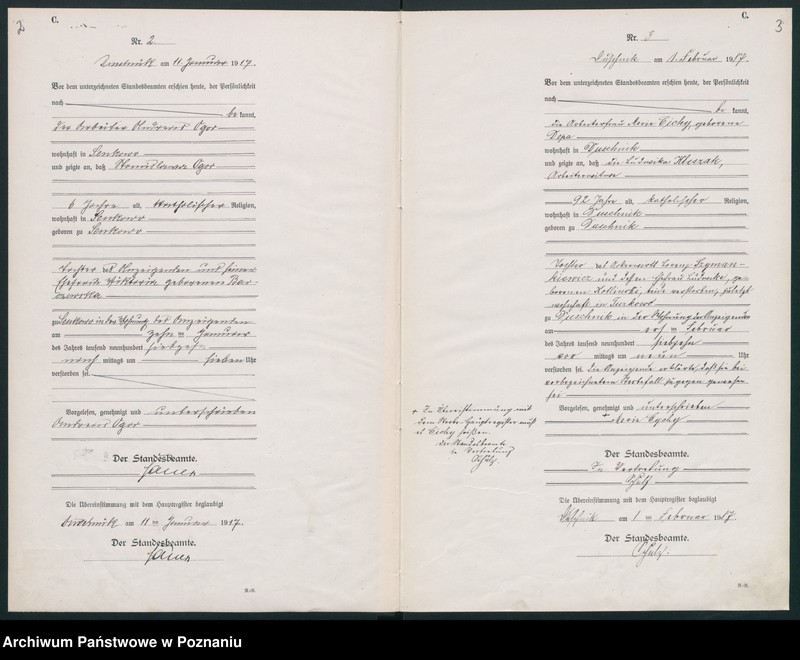 2
C.
Nr. 2
am 11 Januar 1917.
Vor dem unterzeichneten Standesbeamten erschien heute, der Persönlichkeit
nach
be kannt,
der Arbeiter Andreas Ogor
wohnhaft in Senkowo
und zeigte an, daß Stanislawa Ogor
6 Jahre alt, katholischer Religion,
wohnhaft in Senkowo
geboren zu Senkowo
Tochter des Anzeigenden und seiner
Ehefrau Wiktoria geborenen
zu Senkowo in der Wohnung des Anzeigenden
am zehn ten Januar
des Jahres tausend neunhundert siebzehn
nach mittags um sieben Uhr
verstorben sei.
Vorgelesen, genehmigt und unterschrieben
Andreas Ogor
Der Standesbeamte.
Die Übereinstimmung mit dem Hauptregister beglaubigt
am 11 ten Januar 1917.
Der Standesbeamte.
3
C.
Nr. 3
Duschnik am 1. Februar 1917.
Vor dem unterzeichneten Standesbeamten erschien heute, der Persönlichkeit
nach
be kannt,
die Arbeiterfrau Marie Cichy, geborene
wohnhaft in Duschnik
und zeigte an, daß die Ludwika
Arbeiterwitwe
92 Jahre alt, katholischer Religion,
wohnhaft in Duschnik
geboren zu Duschnik
Tochter des Ackerwirth Lorenz Szyman-
kiewicz und dessen Ehefrau Ludwika, ge-
borenen beide verstorben, zuletzt
wohnhaft in
zu Duschnik in der Wohnung der Anzeigenden
am ersten Februar
des Jahres tausend neunhundert siebzehn
vor mittags um neun Uhr
verstorben sei. Die Anzeigende erklärte, daß sie bei
vorbezeichnetem Sterbefall zugegen gewesen
sei
Vorgelesen, genehmigt und unterschrieben
+ Marie Cychy
+ In Übereinstimmung mit
dem Sterbe-Hauptregister muß
es Cichy heißen.
Der Standesbeamte
in Vertretung
Schulz.
Der Standesbeamte.
In Vertretung
Schulz
Die Übereinstimmung mit dem Hauptregister beglaubigt
Duschnik am 1 ten Februar 1917.
Der Standesbeamte.
Schulz.
Archiwum Państwowe w Poznaniu